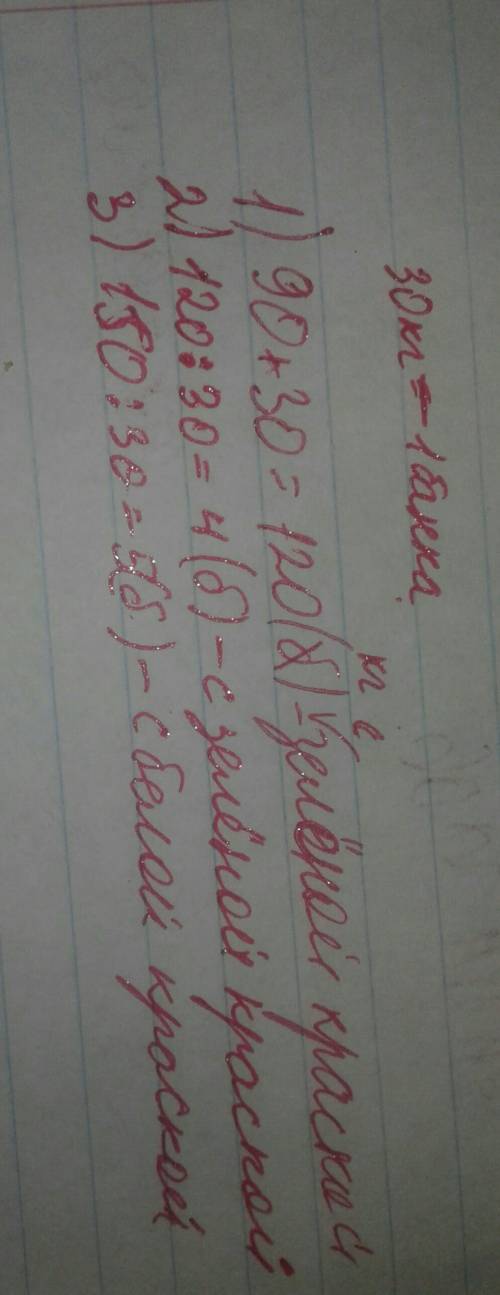 30кг = 1 банка
кг с
1) 90 + 30 = 120 (б) - зелёной краской
2) 120 : 30 = 4 (б) - с зелёной краской
3) 150 : 30 = 5 (б.) - с белой краской